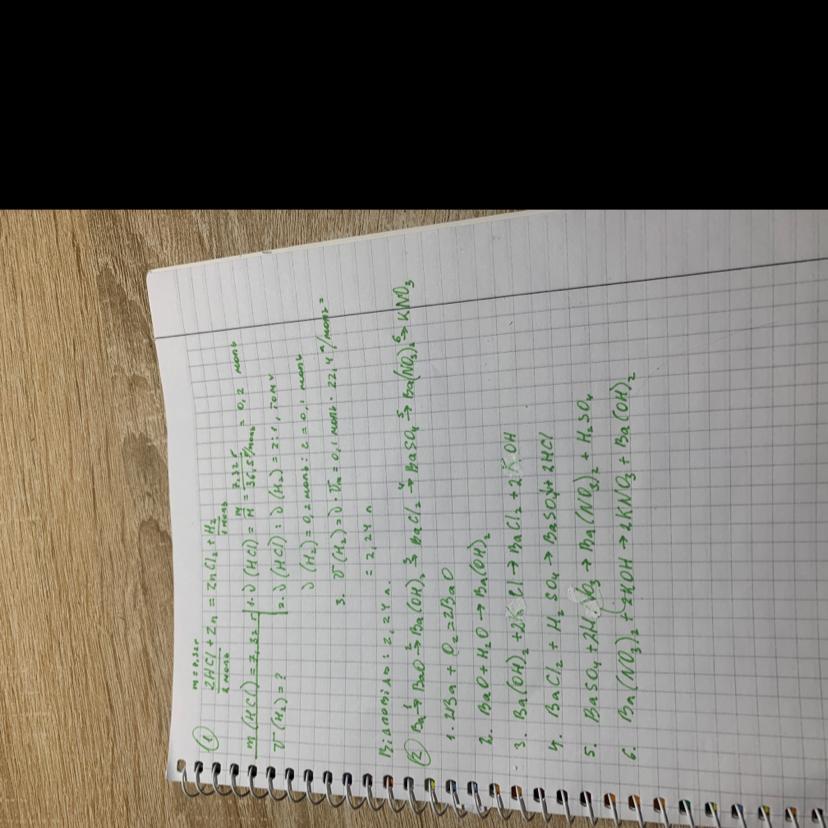 ①
m = 7,32г
2HCl + Zn = ZnCl₂ + H₂
2 моль 1 моль
m (HCl) = 7,32 г
V (H₂) = ?
1. ν (HCl) = m/M = 7,32г/36,5г/моль = 0,2 моль
2. ν (HCl) : ν (H₂) = 2:1, тому
ν (H₂) = 0,2 моль : 2 = 0,1 моль
3. V (H₂) = ν · Vₘ = 0,1 моль · 22,4 л/моль =
= 2,24 л
Відповідь: 2,24 л.
② Ba →¹ BaO →² Ba(OH)₂ →³ BaCl₂ →⁴ BaSO₄ →⁵ Ba(NO₃)₂ →⁶ KNO₃
1. 2Ba + O₂ = 2BaO
2. BaO + H₂O → Ba(OH)₂
3. Ba(OH)₂ + 2KCl → BaCl₂ + 2KOH
4. BaCl₂ + H₂SO₄ → BaSO₄ + 2HCl
5. BaSO₄ + 2HNO₃ → Ba(NO₃)₂ + H₂SO₄
6. Ba(NO₃)₂ + 2KOH → 2KNO₃ + Ba(OH)₂